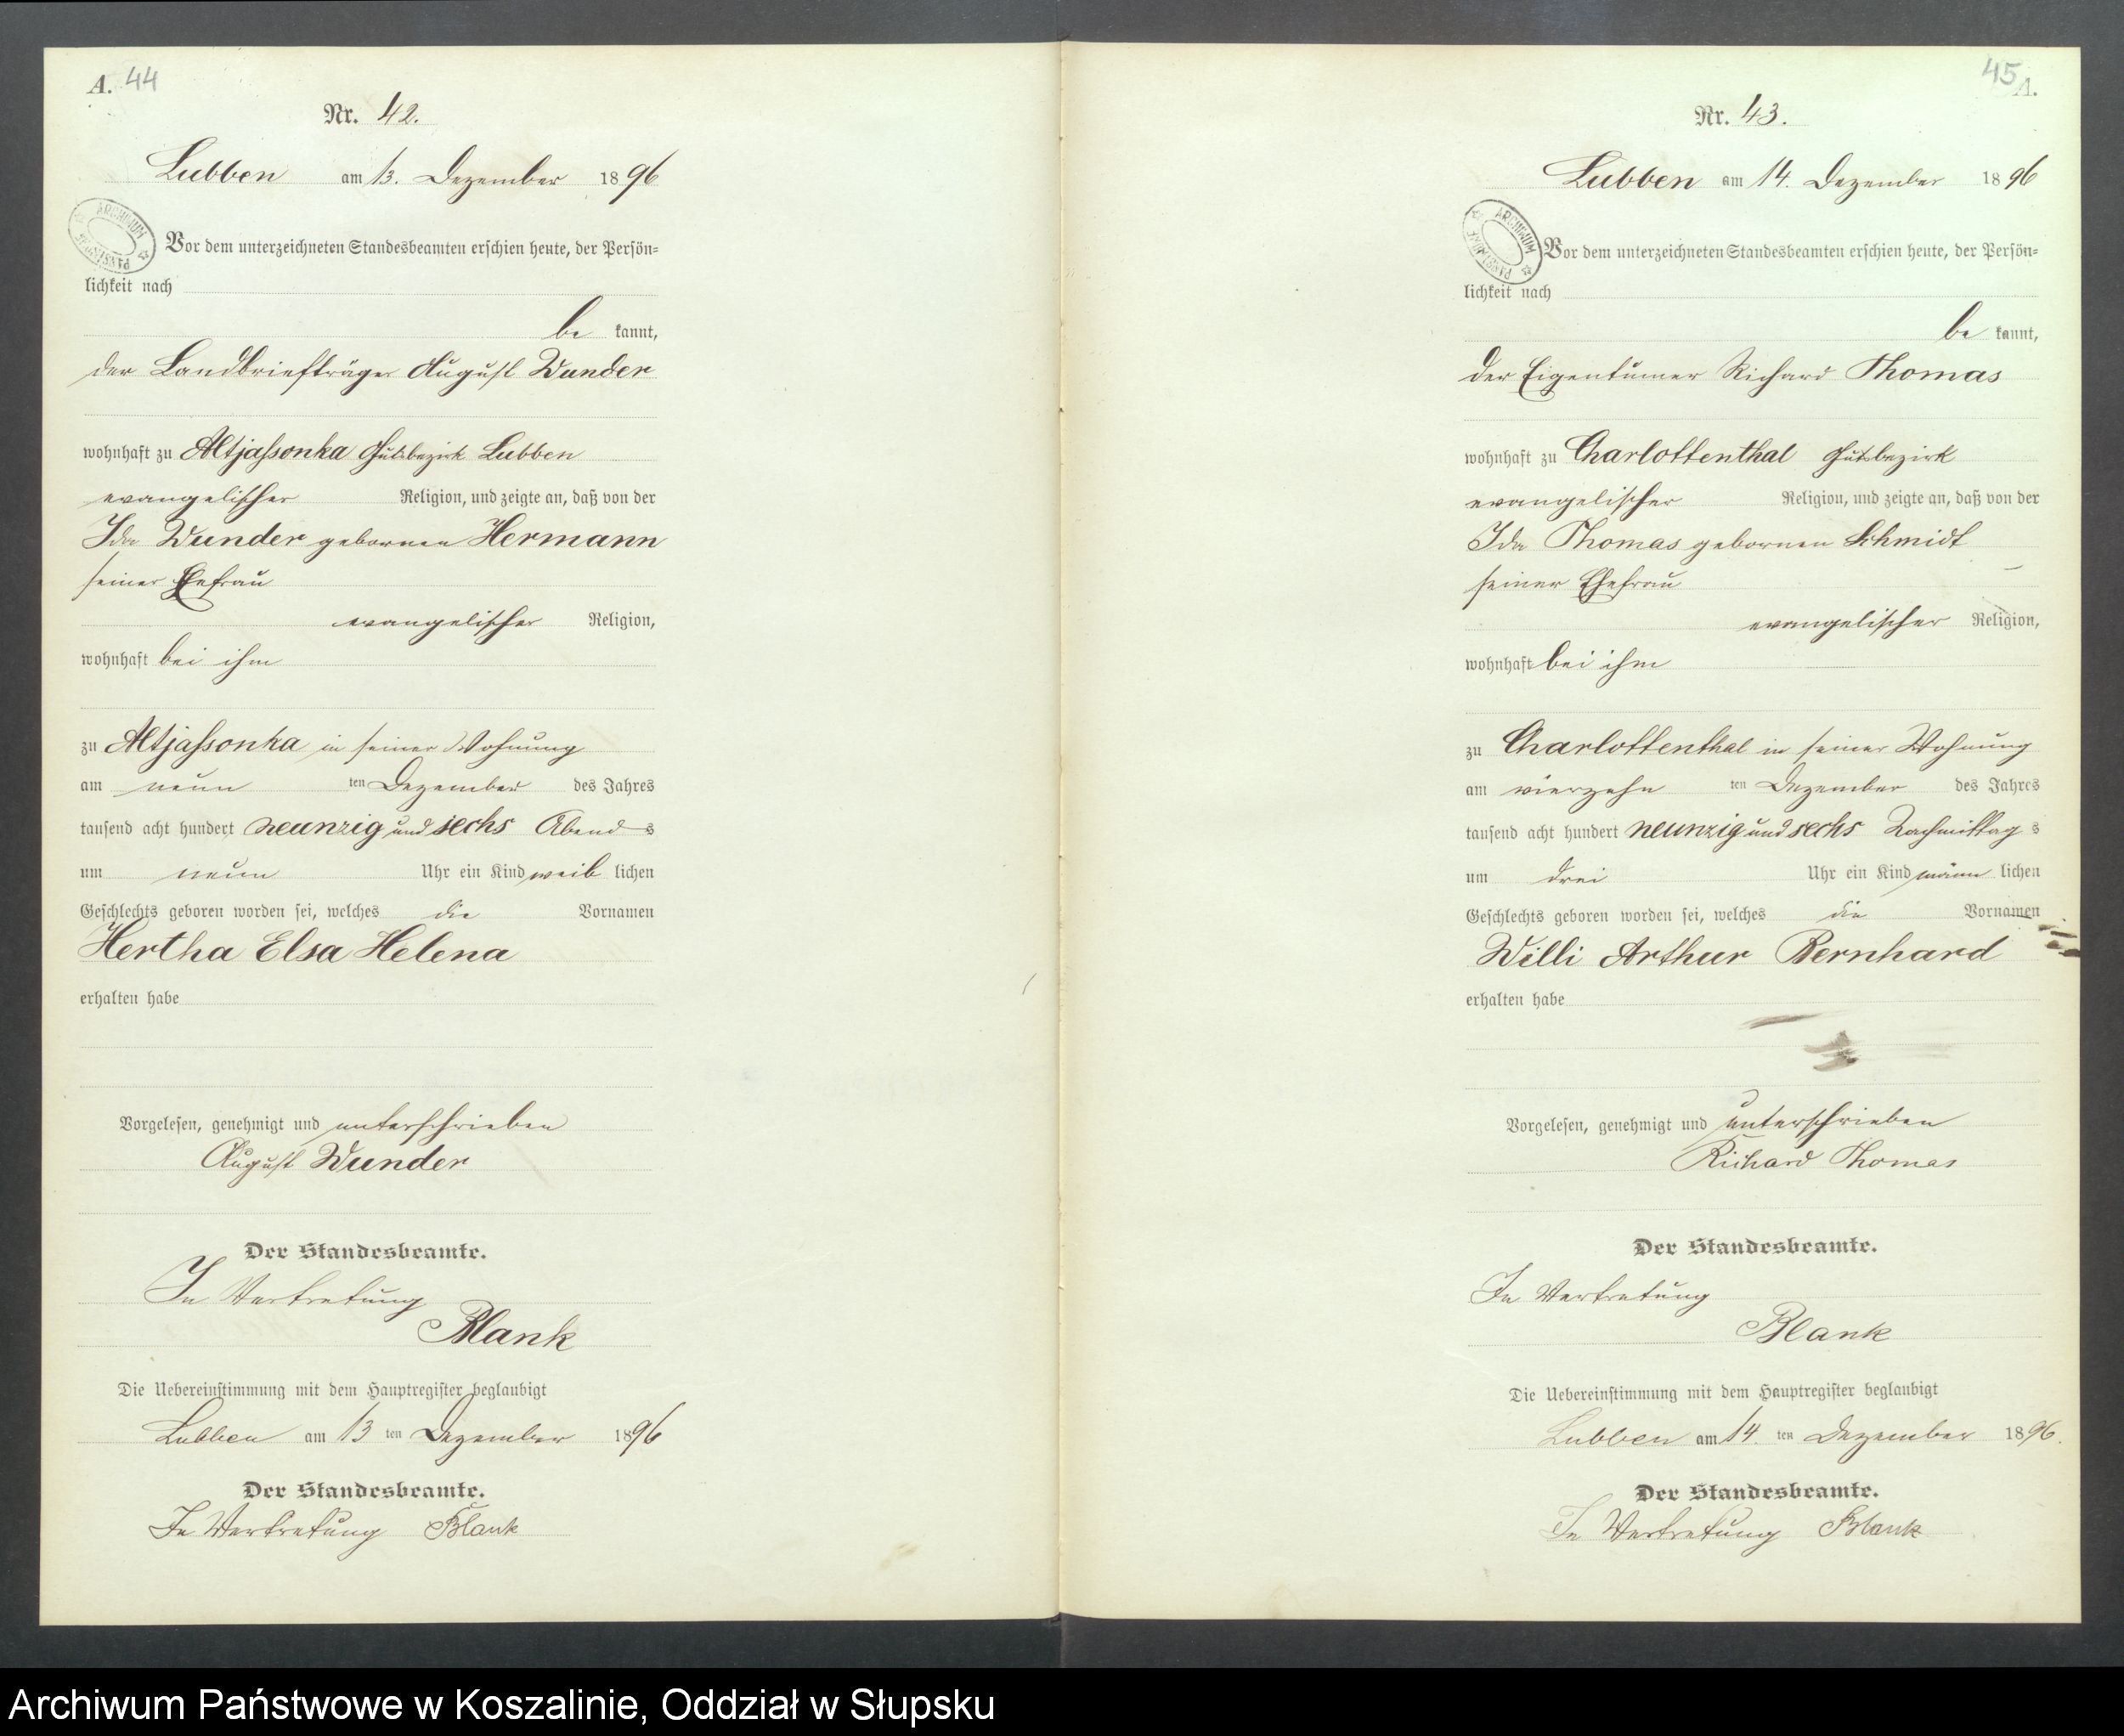 A. 44
Nr. 42.
Lubben am 13. Dezember 1896
ARCHIWUM PAŃSTWOWE
Vor dem unterzeichneten Standesbeamten erschien heute, der Persön=
lichkeit nach
be kannt,
der Landbriefträger August Wunder
wohnhaft zu Altjassonka Gutsbezirk Lubben
evangelischer Religion, und zeigte an, daß von der
Ida Wunder gebornen Hermann
seiner Ehefrau
evangelischer Religion,
wohnhaft bei ihm
zu Altjassonka in seiner Wohnung
am neun ten Dezember des Jahres
tausend acht hundert neunzig und sechs Abend s
um neun Uhr ein Kind weib lichen
Geschlechts geboren worden sei, welches die Vornamen
Hertha Elsa Helena
erhalten habe
Vorgelesen, genehmigt und unterschrieben
August Wunder
Der Standesbeamte.
In Vertretung
Blank
Die Uebereinstimmung mit dem Hauptregister beglaubigt
Lubben am 13 ten Dezember 1896
Der Standesbeamte.
In Vertretung Blank
45 A.
Nr. 43.
Lubben am 14. Dezember 1896
ARCHIWUM PAŃSTWOWE
Vor dem unterzeichneten Standesbeamten erschien heute, der Persön=
lichkeit nach
be kannt,
der Eigentümer Richard Thomas
wohnhaft zu Charlottenthal Gutsbezirk
evangelischer Religion, und zeigte an, daß von der
Ida Thomas gebornen Schmidt
seiner Ehefrau
evangelischer Religion,
wohnhaft bei ihm
zu Charlottenthal in seiner Wohnung
am vierzehn ten Dezember des Jahres
tausend acht hundert neunzig und sechs Nachmittag s
um drei Uhr ein Kind männ lichen
Geschlechts geboren worden sei, welches die Vornamen
Willi Arthur Bernhard
erhalten habe
Vorgelesen, genehmigt und unterschrieben
Richard Thomas
Der Standesbeamte.
In Vertretung
Blank
Die Uebereinstimmung mit dem Hauptregister beglaubigt
Lubben am 14. ten Dezember 1896.
Der Standesbeamte.
In Vertretung Blank
Archiwum Państwowe w Koszalinie, Oddział w Słupsku